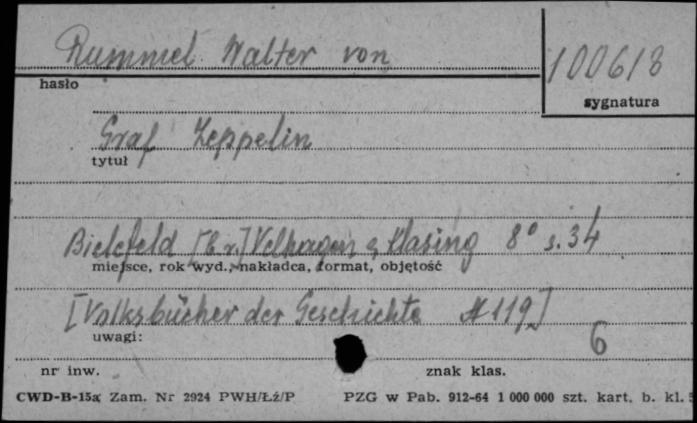 Rummel Walter von
100618
hasło
sygnatura
Graf Zeppelin
tytuł
Bielefeld [b.r.] Velhagen & Klasing 8° s. 34
miejsce, rok wyd., nakładca, format, objętość
[Volksbücher der Geschichte # 119]
uwagi:
6
nr inw.
znak klas.
CWD-B-15a Zam. Nr 2924 PWH/Łź/P PZG w Pab. 912-64 1 000 000 szt. kart. b. kl.